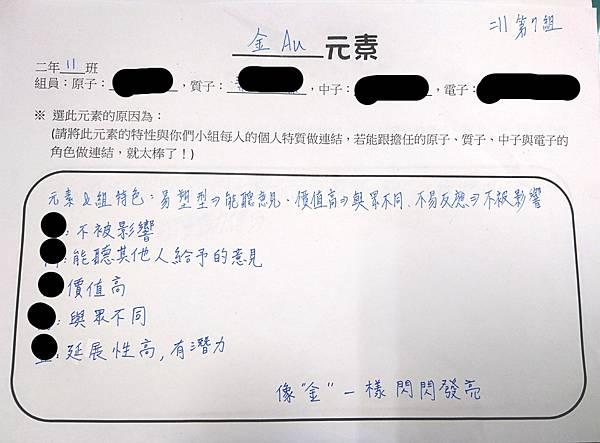 二11 第7組
金 Au 元素
二年 11 班
組員：原子：，質子：，中子：，電子：
※ 選此元素的原因為：
(請將此元素的特性與你們小組每人的個人特質做連結，若能跟擔任的原子、質子、中子與電子的
角色做連結，就太棒了！)
元素&組特色：易塑型⇒能聽意見、價值高⇒與眾不同、不易反應⇒不被影響
：不被影響
：能聽其他人給予的意見
價值高
：與眾不同
：延展性高，有潛力
像"金"一樣閃閃發亮